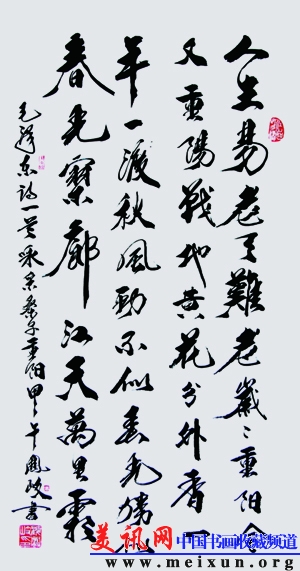 人生易老天難老歲〻重阳今
又重陽戰地黄花分外香一
年一渡秋風勁不似春光勝似
春光寥廓江天萬里霜
毛澤东詩一首采桑子重阳甲午書
美讯网 中国书画收藏频道
www.meixun.org